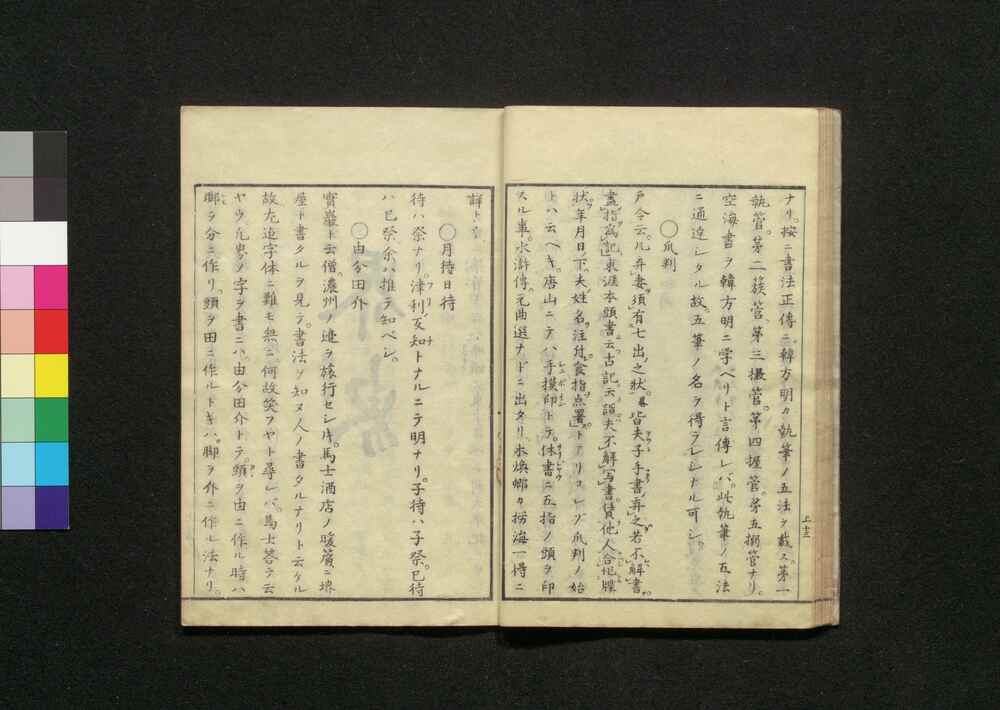 ナリ。按ニ書法正傳ニ。韓方明カ執筆ノ五法ヲ載ス。第一
執管。第二簇管。第三撮管。第四握管。第五搦管ナリ。
空海書ヲ韓方明ニ学ベリト言傳レバ。此執筆ノ五法
ニ通達シタル故。五筆ノ名ヲ得ラレシナル可シ。
〇爪判
戸令云。凡弃妻須有七出之状。皆夫手書弃之若不解書。
畫指為記。 本頭書云古記云 夫不解写書。賃他人
状年月日下夫姓名注付食指点署。トアリコレゾ爪判ノ始
トハ云ヘキ。唐山ニテハ手摸印トテ。休書ニ五指ノ頭ヲ印
スル事。水滸傳。元曲選ナドニ出タリ。 海一得ニ
詳ト 
〇月待日待
待ハ祭ナリ。津利反知トナルニテ明ナリ。子待ハ子祭。巳待
ハ巳祭余ハ推テ知ベシ。
〇由分田介
實巖ト云僧。濃州ノ邉ヲ旅行セシ時。馬士酒店ノ暖簾ニ堺
屋ト書タルヲ見テ。書法ヲ知ヌ人ノ書タルナリト云ケル
故左迄字体ニ難モ無ニ。何故笑フヤト尋レバ。馬士答テ云
ヤウ凡畀ノ字ヲ書ニハ。由分田介トテ。頭ヲ由ニ作ル時ハ
脚ヲ分ニ作リ。頭ヲ田ニ作ルトキハ。脚ヲ介ニ作ル法ナリ。
上十三